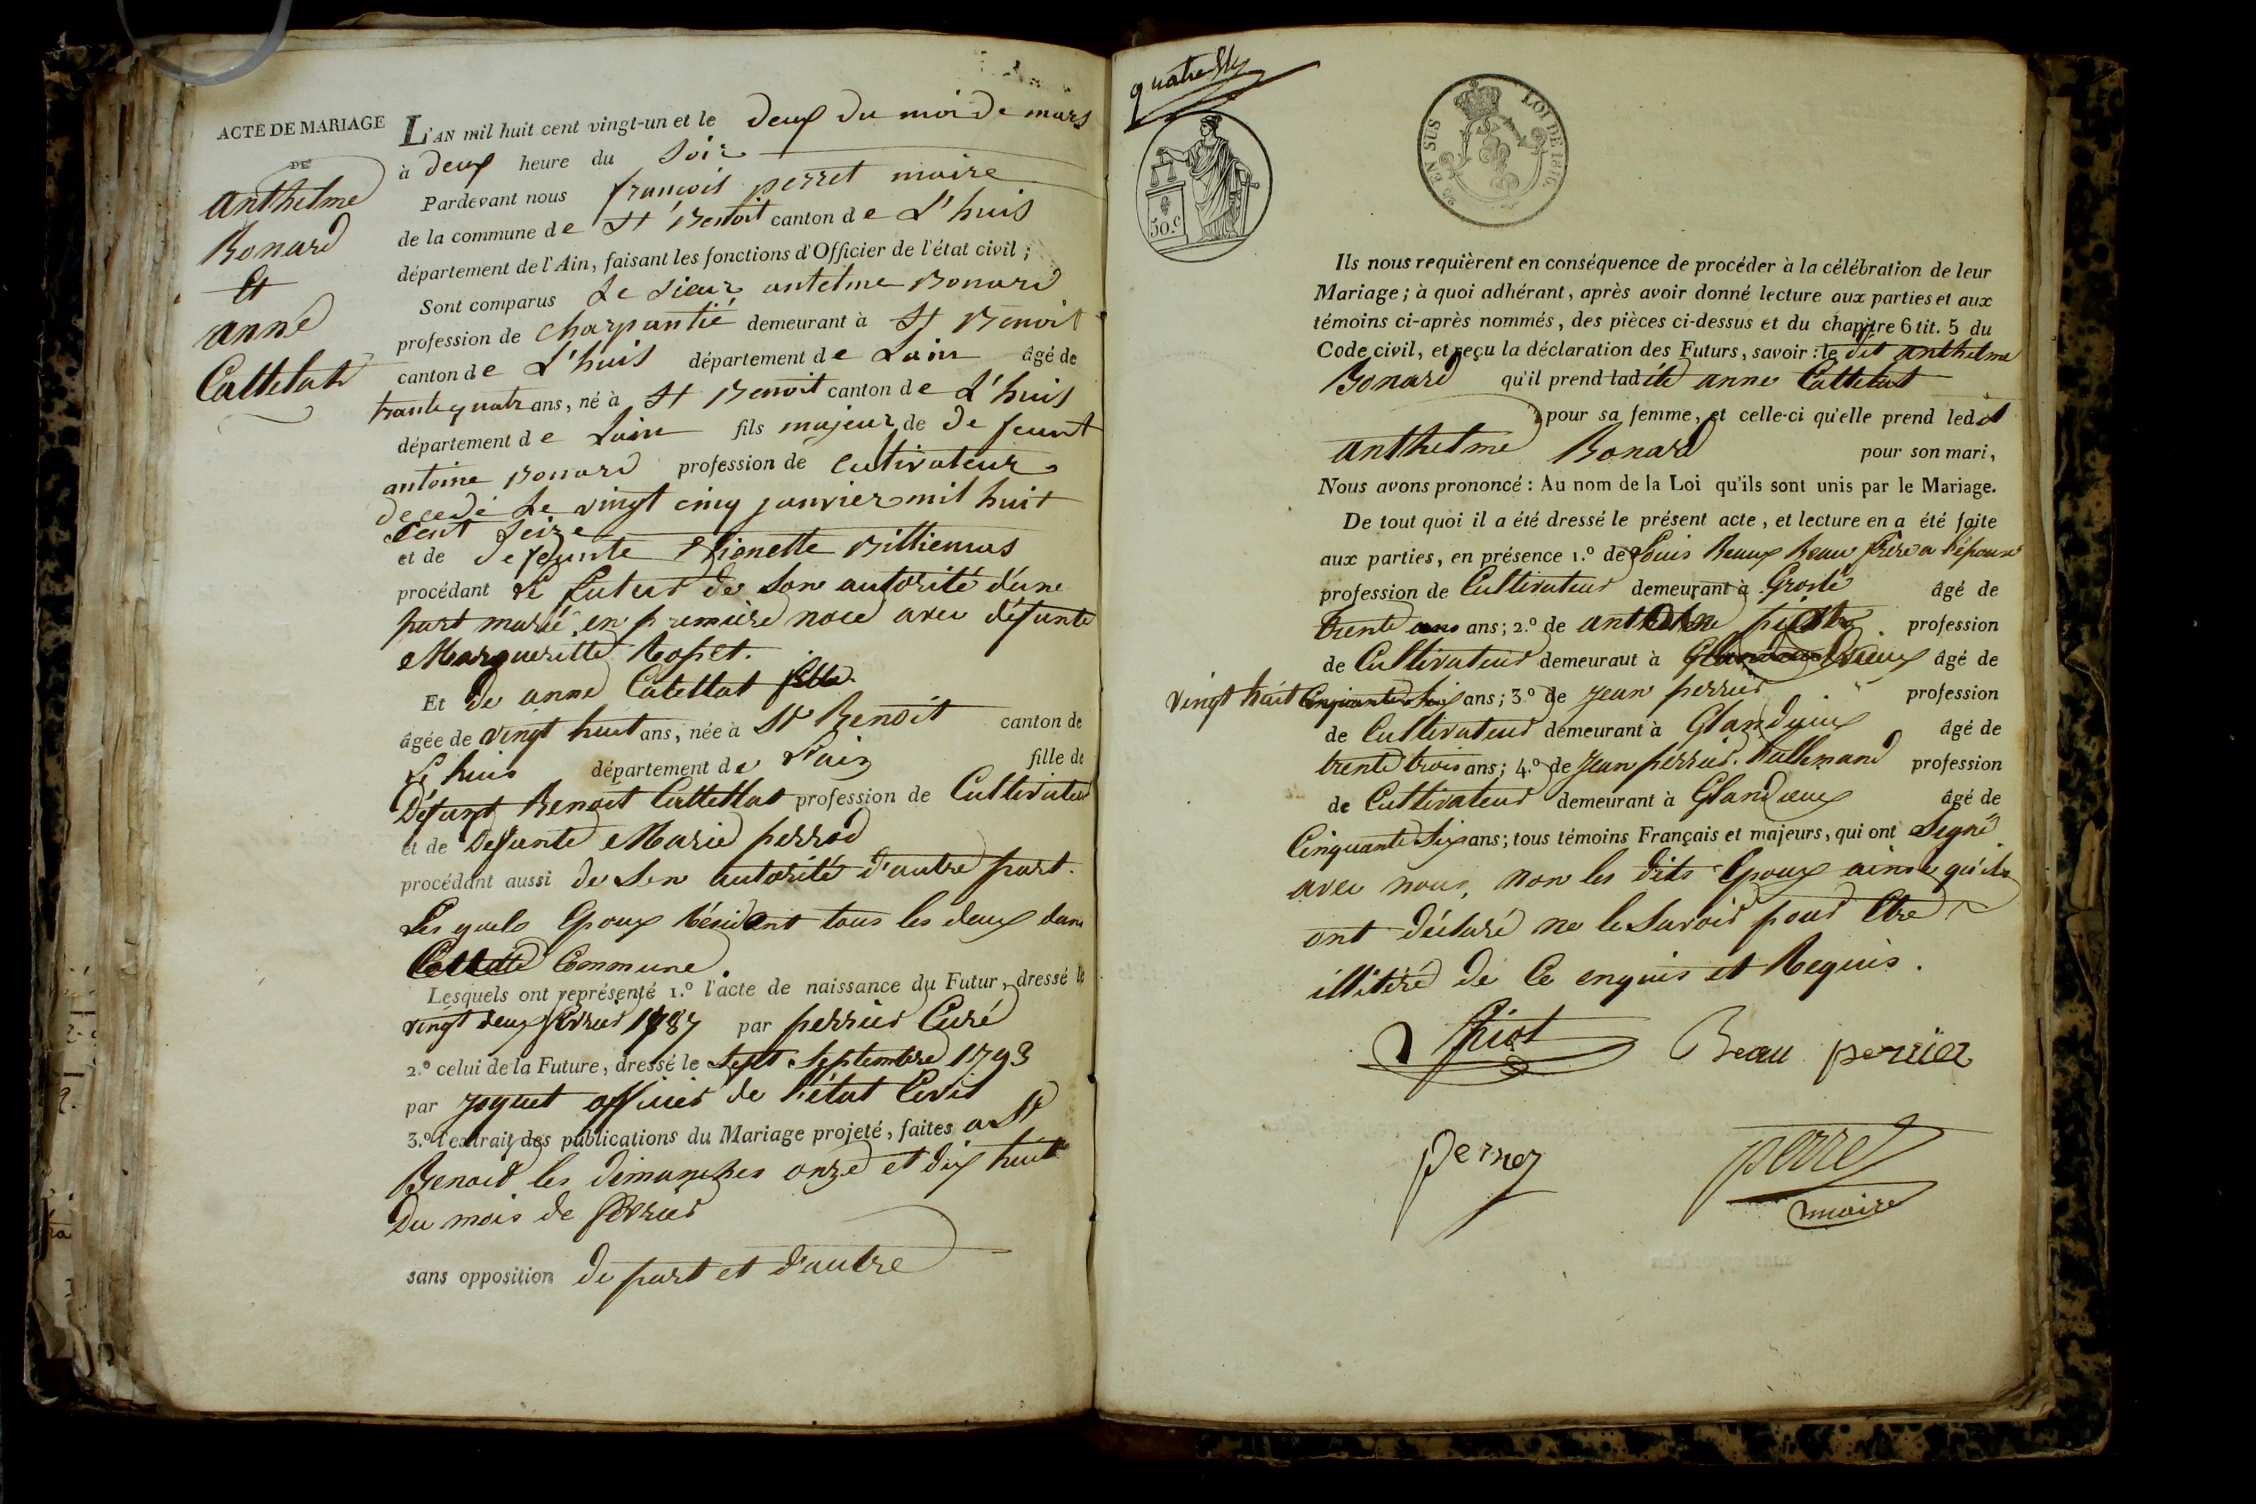 ACTE DE MARIAGE
DE
Anthelme
Bonard
Et
anne
Cattelat
L'AN mil huit cent vingt-un et le deux du moi de mars
à deux heure du soir
Pardevant nous françois perret maire
de la commune de St Benoit canton de L'huis
département de l'Ain, faisant les fonctions d'Officier de l'état civil ;
Sont comparus Le sieur antelme Bonard
profession de charpantié demeurant à St Benoit
canton de L'huis département de Lain âgé de
trante quatr ans, né à St Benoit canton de L'huis
département de Lain fils majeur de defeunt
antoine Bonard profession de cultivateur
decedé le vingt cinq janvier mil huit
cent seize
et de defeunte Billiemas
procédant le futur de son autorité d'une
part marié en première noce avec défunte
Margueritte Rosset.
Et de anne Catellat fille
âgée de vingt huit ans, née à St Benoit canton de
L'huis département de l'ain fille de
Défunt Benoit Cattellat profession de Cultivateur
et de Defunte Marie perrod
procédant aussi de son autorité d'autre part.
Les quels Epoux résident tous les deux dans
Commune
Lesquels ont représenté 1.º l'acte de naissance du Futur, dressé le
vingt deux février 1787 par perrier Curé
2.º celui de la Future, dressé le sept Septembre 1793
par Joguet officier de l'état Civil
3.º l'extrait des publications du Mariage projeté, faites a St
Benoit les dimanches onze et dix huit
Du mois de février
sans opposition de part et d'autre
quatre
50.c
EN SUS LOI DE 1816.
Ils nous requièrent en conséquence de procéder à la célébration de leur
Mariage ; à quoi adhérant, après avoir donné lecture aux parties et aux
témoins ci-après nommés, des pièces ci-dessus et du chapitre 6 tit. 5 du
Code civil, et reçu la déclaration des Futurs, savoir : le dit anthelme
Bonard qu'il prend ladite anne Cattelat
pour sa femme, et celle-ci qu'elle prend ledit
anthelme Bonard pour son mari,
Nous avons prononcé : Au nom de la Loi qu'ils sont unis par le Mariage.
De tout quoi il a été dressé le présent acte, et lecture en a été faite
aux parties, en présence 1.º de Louis Beaux Beau frère a l'épouse
profession de Cultivateur demeurant à Grolé âgé de
trente ans ; 2.º de profession
de Cultivateur demeuraut à âgé de
vingt huit Cinquante Six ans ; 3.º de Jean perrier profession
de Cultivateur demeurant à Glandieux âgé de
trente trois ans ; 4.º de Jean perrier. Rallemand profession
de Cultivateur demeurant à Glandieux âgé de
Cinquante Six ans ; tous témoins Français et majeurs, qui ont Signé
avec nous, non les dits Epoux ainsi qu'ils
ont déclaré ne le Savoir pour Etre
illitéré de Ce enquis et Requis.
Piot
Beau perrier
perrier
perret
maire